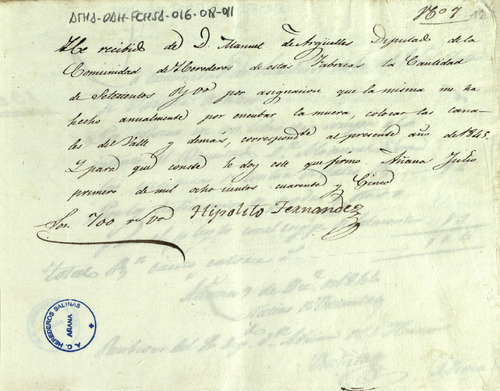 ATHA-DAH-FCHSA-016-08-011
Nº 7
He recibido de D. Manuel de Argüelles Deputado de la
Comunidad de Herederos de estas Fabricas la Cantidad
de Setecientos Rs von por asignacion que la misma me ha
hecho anualmente por encubar la muera, colocar las cana-
les del Valle y demas, correspondte al presente año de 1845.
Y para que conste le doy este que firmo Añana Julio
primero de mil ocho cientos cuarenta y Cinco
Son 700 rs von Hipolito Fernandez
HEREDEROS SALINAS
A.C.
AÑANA